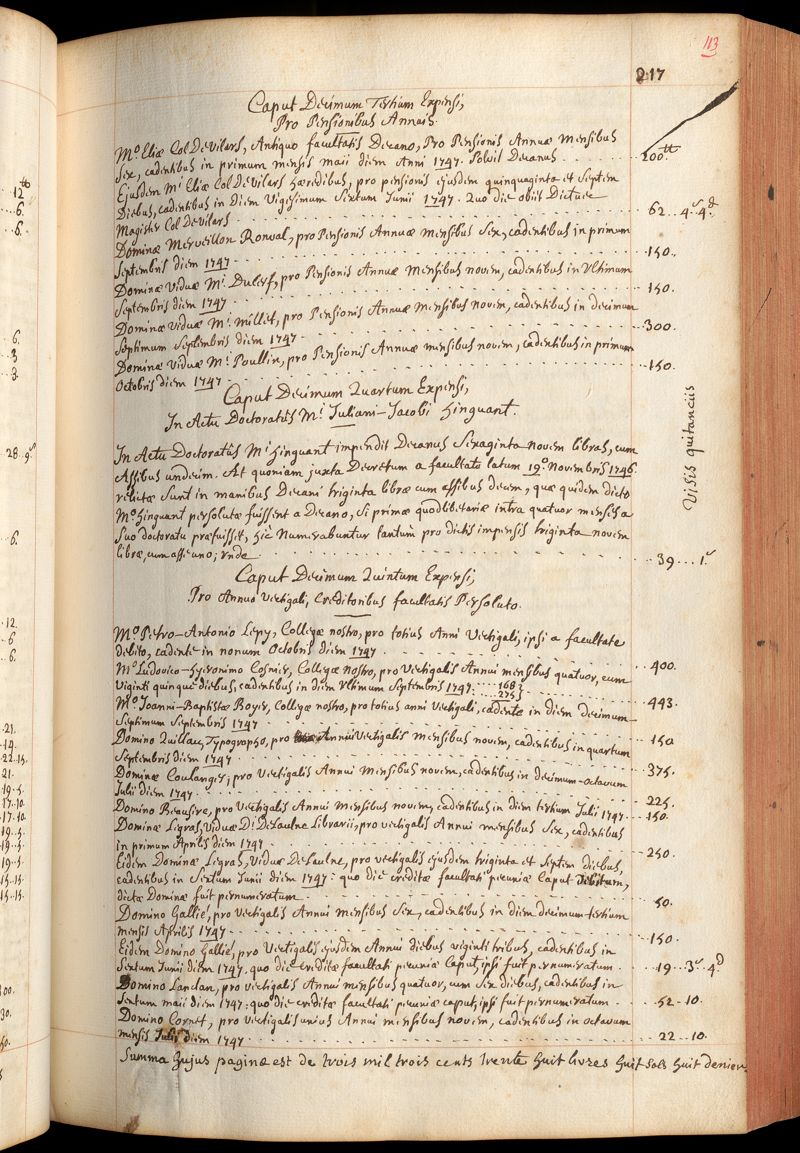 113
217
Caput Decimum Tertium Expensi,
Pro Pensionibus Annuis.
M.º Eliæ Col De Vilars, Antiquo facultatis Decano, Pro Pensionis Annuæ Mensibus
Sex, cadentibus in primum mensis maii diem Anni 1747. Solvit Decanus . . . 200.tt
Ejusdem M.i Eliæ Col De Vilars hæredibus, pro pensionis ejusdem quinquaginta et Septem
Diebus, cadentibus in Diem Vigesimum Sextum Junii 1747. Quo die obiit Dictus
Magister Col De Vilars . . . 62 .. 4.s 4.d
Dominæ Merveillon Ronval, pro Pensionis Annuæ Mensibus Sex, cadentibus in primum
Septembris diem 1747 . . . 150..
Dominæ Viduæ M.i Dulerf, pro Pensionis Annuæ Mensibus novem, cadentibus in Ultimum
Septembris diem 1747 . . . 150.
Dominæ Viduæ M.i Millet, pro Pensionis Annuæ Mensibus novem, cadentibus in decimum
Septimum Septembris diem 1747 . . . 300.
Dominæ Viduæ M.i Poullin, pro Pensionis Annuæ mensibus novem, cadentibus in primum
Octobris diem 1747 . . . 150.
Caput Decimum Quartum Expensi,
In Actu Doctoratûs M.i Juliani-Jacobi hinguant.
In Actu Doctoratûs M.i hinguant impendit Decanus Sexaginta novem libras, cum
Assibus undecim. At quoniam juxta Decretum a facultate latum 19.º Novembris 1746.
relictæ sunt in manibus Decani triginta libræ cum assibus decem, quæ quidem dicto
M.º hinguant persolutæ fuissent a Decano, Si primæ quodlibetariæ intra quatuor menses a
Suo doctoratu præfuisset, hîc Numerabuntur tantùm pro dictis impensis triginta novem
libræ, cum asse uno; unde . . . 39 ... 1.s
Visis quitanciis
Caput Decimum Quintum Expensi,
Pro Annuo Vectigali, Creditoribus facultatis Persoluto.
M.º Petro-Antonio Lepy, Collegæ nostro, pro totius Anni Vectigali, ipsi a facultate
debito, cadente in nonum Octobris diem 1747 . . . 400.
M.º Ludovico-hyeronimo Cosnier, Collegæ nostro, pro Vectigalis Annui mensibus quatuor, cum
Viginti quinque diebus, cadentibus in diem Ultimum Septembris 1747 : ... 168 } ... 275 } . . . 443.
M.º Joanni-Baptistæ Boyer, Collegæ nostro, pro totius anni Vectigali, cadente in diem decimum
Septimum Septembris 1747 . . . 150
Domino Quillau, Typographo, pro Annui Vectigalis Mensibus novem, cadentibus in quartum
Septembris diem 1747 . . . 375.
Dominæ Coulanges, pro Vectigalis Annui Mensibus novem, cadentibus in decimum-octavum
Julii diem 1747 . . . 225.
Domino Beausire, pro Vectigalis Annui Mensibus novem, cadentibus in diem tertium Julii 1747 .. 150.
Dominæ Legras, Viduæ D.i De Laulne Librarii, pro vectigalis Annui mensibus Sex, cadentibus
in primum Aprilis diem 1747 . . . 250.
Eidem Dominæ Legras, Viduæ De Laulne, pro vectigalis ejusdem triginta et Septem diebus,
cadentibus in Sextum Junii diem 1747 : quo die creditæ facultati pecuniæ Caput debitum,
dictæ Dominæ fuit pernumeratum . . . 50.
Domino Gallié, pro Vectigalis Annui Mensibus Sex, cadentibus in diem decimum-tertium
mensis Aprilis 1747 . . . 150.
Eidem Domino Gallié, pro Vectigalis ejusdem Annui diebus viginti tribus, cadentibus in
Sextum Junii diem 1747. quo die creditæ facultati pecuniæ Caput, ipsi fuit pernumeratum . . 19 .. 3.s 4.d
Domino Landan, pro vectigalis Annui mensibus quatuor, cum Sex diebus, cadentibus in
Sextum maii diem 1747 : quo die creditæ facultati pecuniæ caput, ipsi fuit pernumeratum . . 52 - 10.
Domino Cornet, pro Vectigalis unius Annui mensibus novem, cadentibus in octavum
mensis Julii diem 1747 . . . 22 .. 10.
Summa hujus paginæ est de trois mil trois cents trente huit livres huit sols huit deniers.